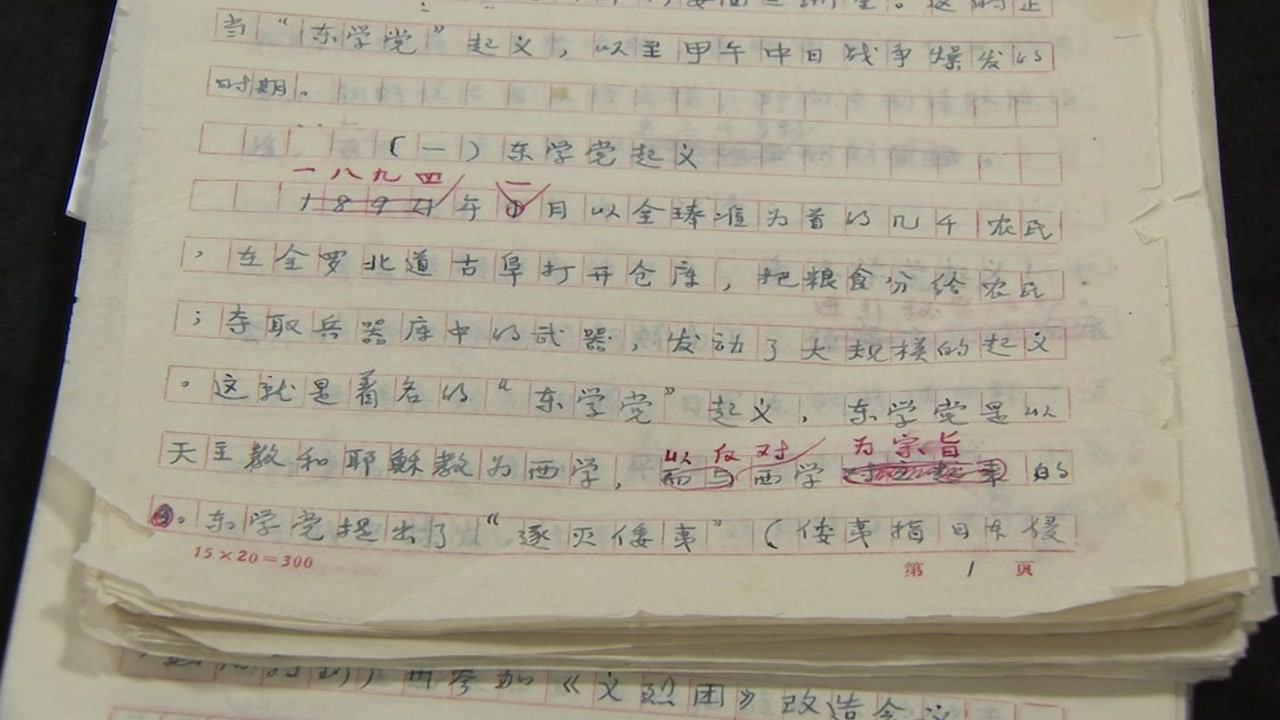 当“东学党”起义，以至甲午中日战争爆发的
时期。
（一）东学党起义
一八九四
1894年 月以全琫准为首的几千农民
，在全罗北道古阜打开仓库，把粮食分给农民
；夺取兵器库中的武器，发动了大规模的起义
。这就是着名的“东学党”起义，东学党是以
以反对 为宗旨
天主教和耶稣教为西学，而与西学 的
。东学党提出了“逐灭倭夷”（倭夷指日本侵
15×20=300
第 1 页
参加《义烈团》改造会议